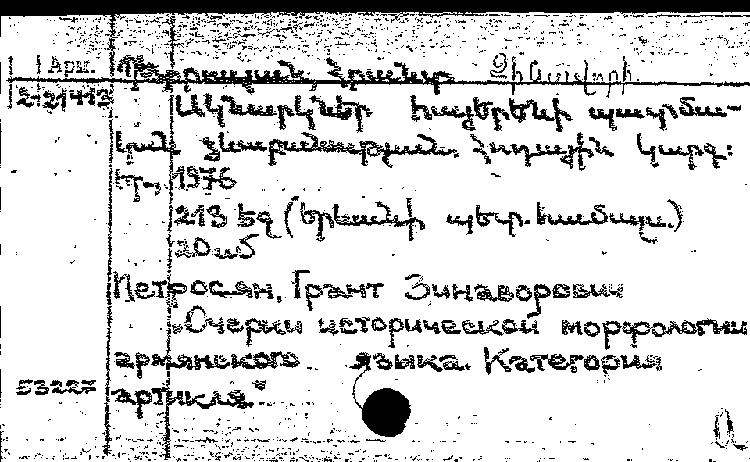 Арм. Պետրոսյան, Հրանտ Զինավորի
2-21413 Ակնարկներ հայերենի պատմա-
կան ձևաբանության. Հոդային կարգ:
Եր., 1976
213 էջ (Երևանի պետ. համալս.)
20սմ
Петросян, Грант Зинаворович
„Очерки исторической морфологии
армянского языка. Категория
53227 артикля."
a